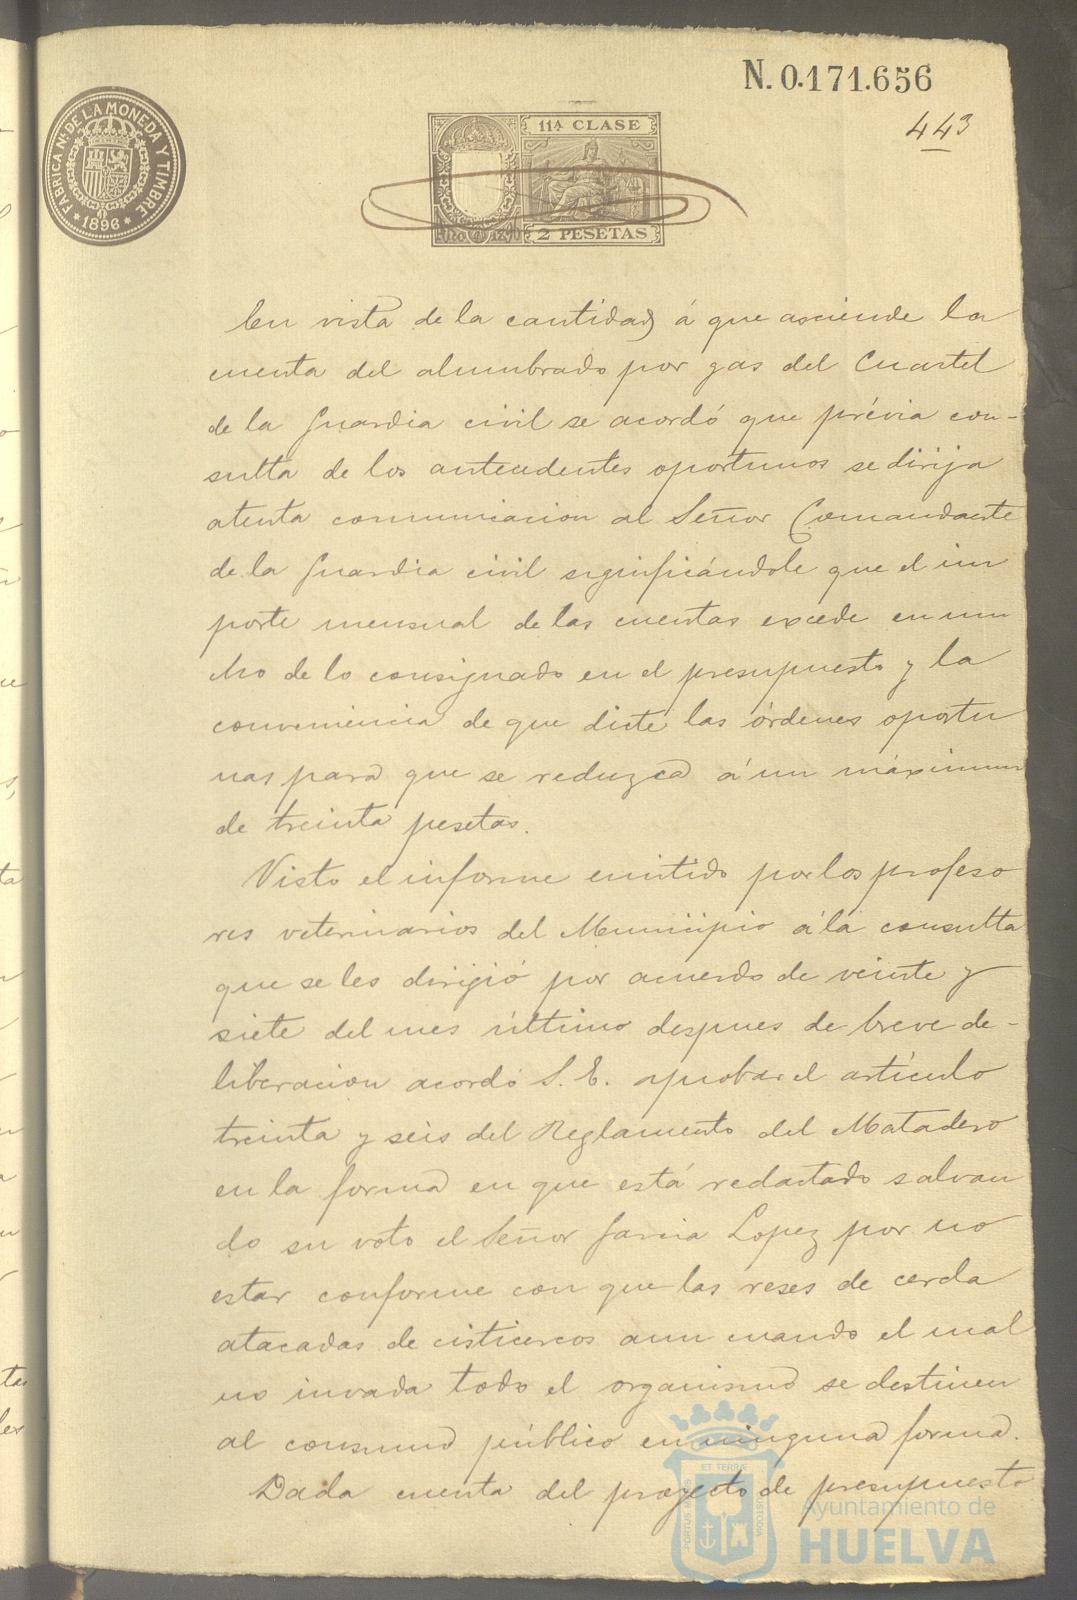 N. 0.171.656
443
FABRICA NL. DE LA MONEDA Y TIMBRE
* 1896 *
11ª CLASE
2 PESETAS
En vista de la cantidad á que asciende la
cuenta del alumbrado por gas del Cuartel
de la Guardia civil se acordó que prévia con-
sulta de los antecedentes oportunos se dirija
atenta comunicacion al Señor Comandante
de la Guardia civil significándole que el im
porte mensual de las cuentas excede en mu
cho de lo consignado en el presupuesto y la
conveniencia de que dicte las órdenes oportu
nas para que se reduzca á un máximum
de treinta pesetas.
Visto el informe emitido por los profeso
res veterinarios del Municipio á la consulta
que se les dirigió por acuerdo de veinte y
siete del mes último despues de breve de-
liberacion acordó S. E. aprobar el artículo
treinta y seis del Reglamento del Matadero
en la forma en que está redactado salvan
do su voto el Señor Garcia Lopez por no
estar conforme con que las reses de cerda
atacadas de cisticercos aun cuando el mal
no invada todo el organismo se destinen
al consumo público en ninguna forma.
Dada cuenta del proyecto de presupuesto
PORTUS MARIS ET TERRÆ CUSTODIA
Ayuntamiento de
HUELVA